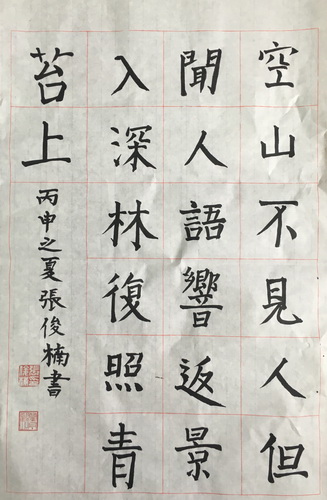 空山不見人但
聞人語響返景
入深林復照青
苔上
丙申之夏張俊楠書